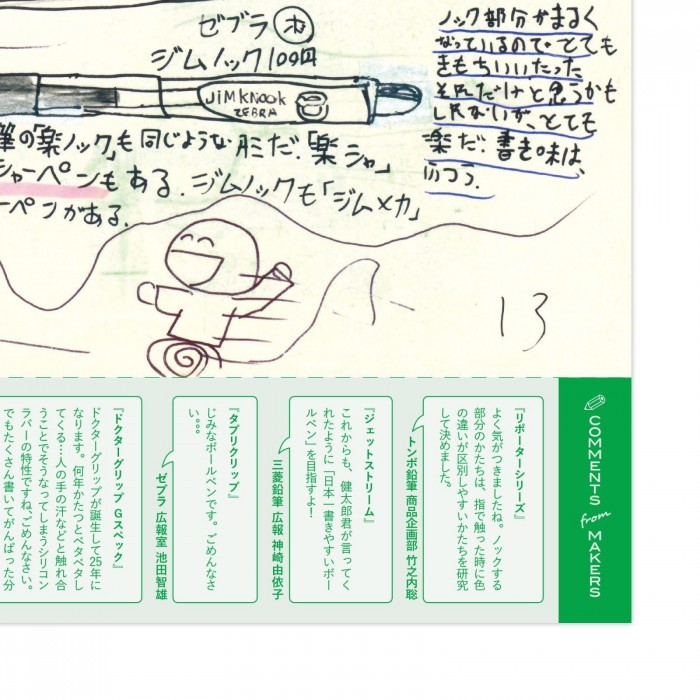 ゼブラ
ジムノック100円
JiMKNOCK
ZEBRA
ノック部分がまるく
なっているので、とても
きもちいい。たった
それだけと思うかも
しれないが、とても
楽だ。書き味は、
ふつう。
筆の「楽ノック」も同じような形だ。「楽シャ」
シャーペンもある。ジムノックも「ジムメカ」
ーペンがある。
13
COMMENTS from MAKERS
『リポーターシリーズ』
よく気がつきましたね。ノックする
部分のかたちは、指で触った時に色
の違いが区別しやすいかたちを研究
して決めました。
トンボ鉛筆 商品企画部 竹之内聡
『ジェットストリーム』
これからも、健太郎君が言ってく
れたように「日本一書きやすいボー
ルペン」を目指すよ！
三菱鉛筆 広報 神崎由依子
『タプリクリップ』
じみなボールペンです。ごめんなさ
い。。。
ゼブラ 広報室 池田智雄
『ドクターグリップ Gスペック』
ドクターグリップが誕生して25年に
なります。何年かたつとベタベタし
てくる…人の手の汗などと触れ合
うことでそうなってしまうシリコン
ラバーの特性ですね、ごめんなさい。
でもたくさん書いてがんばった分